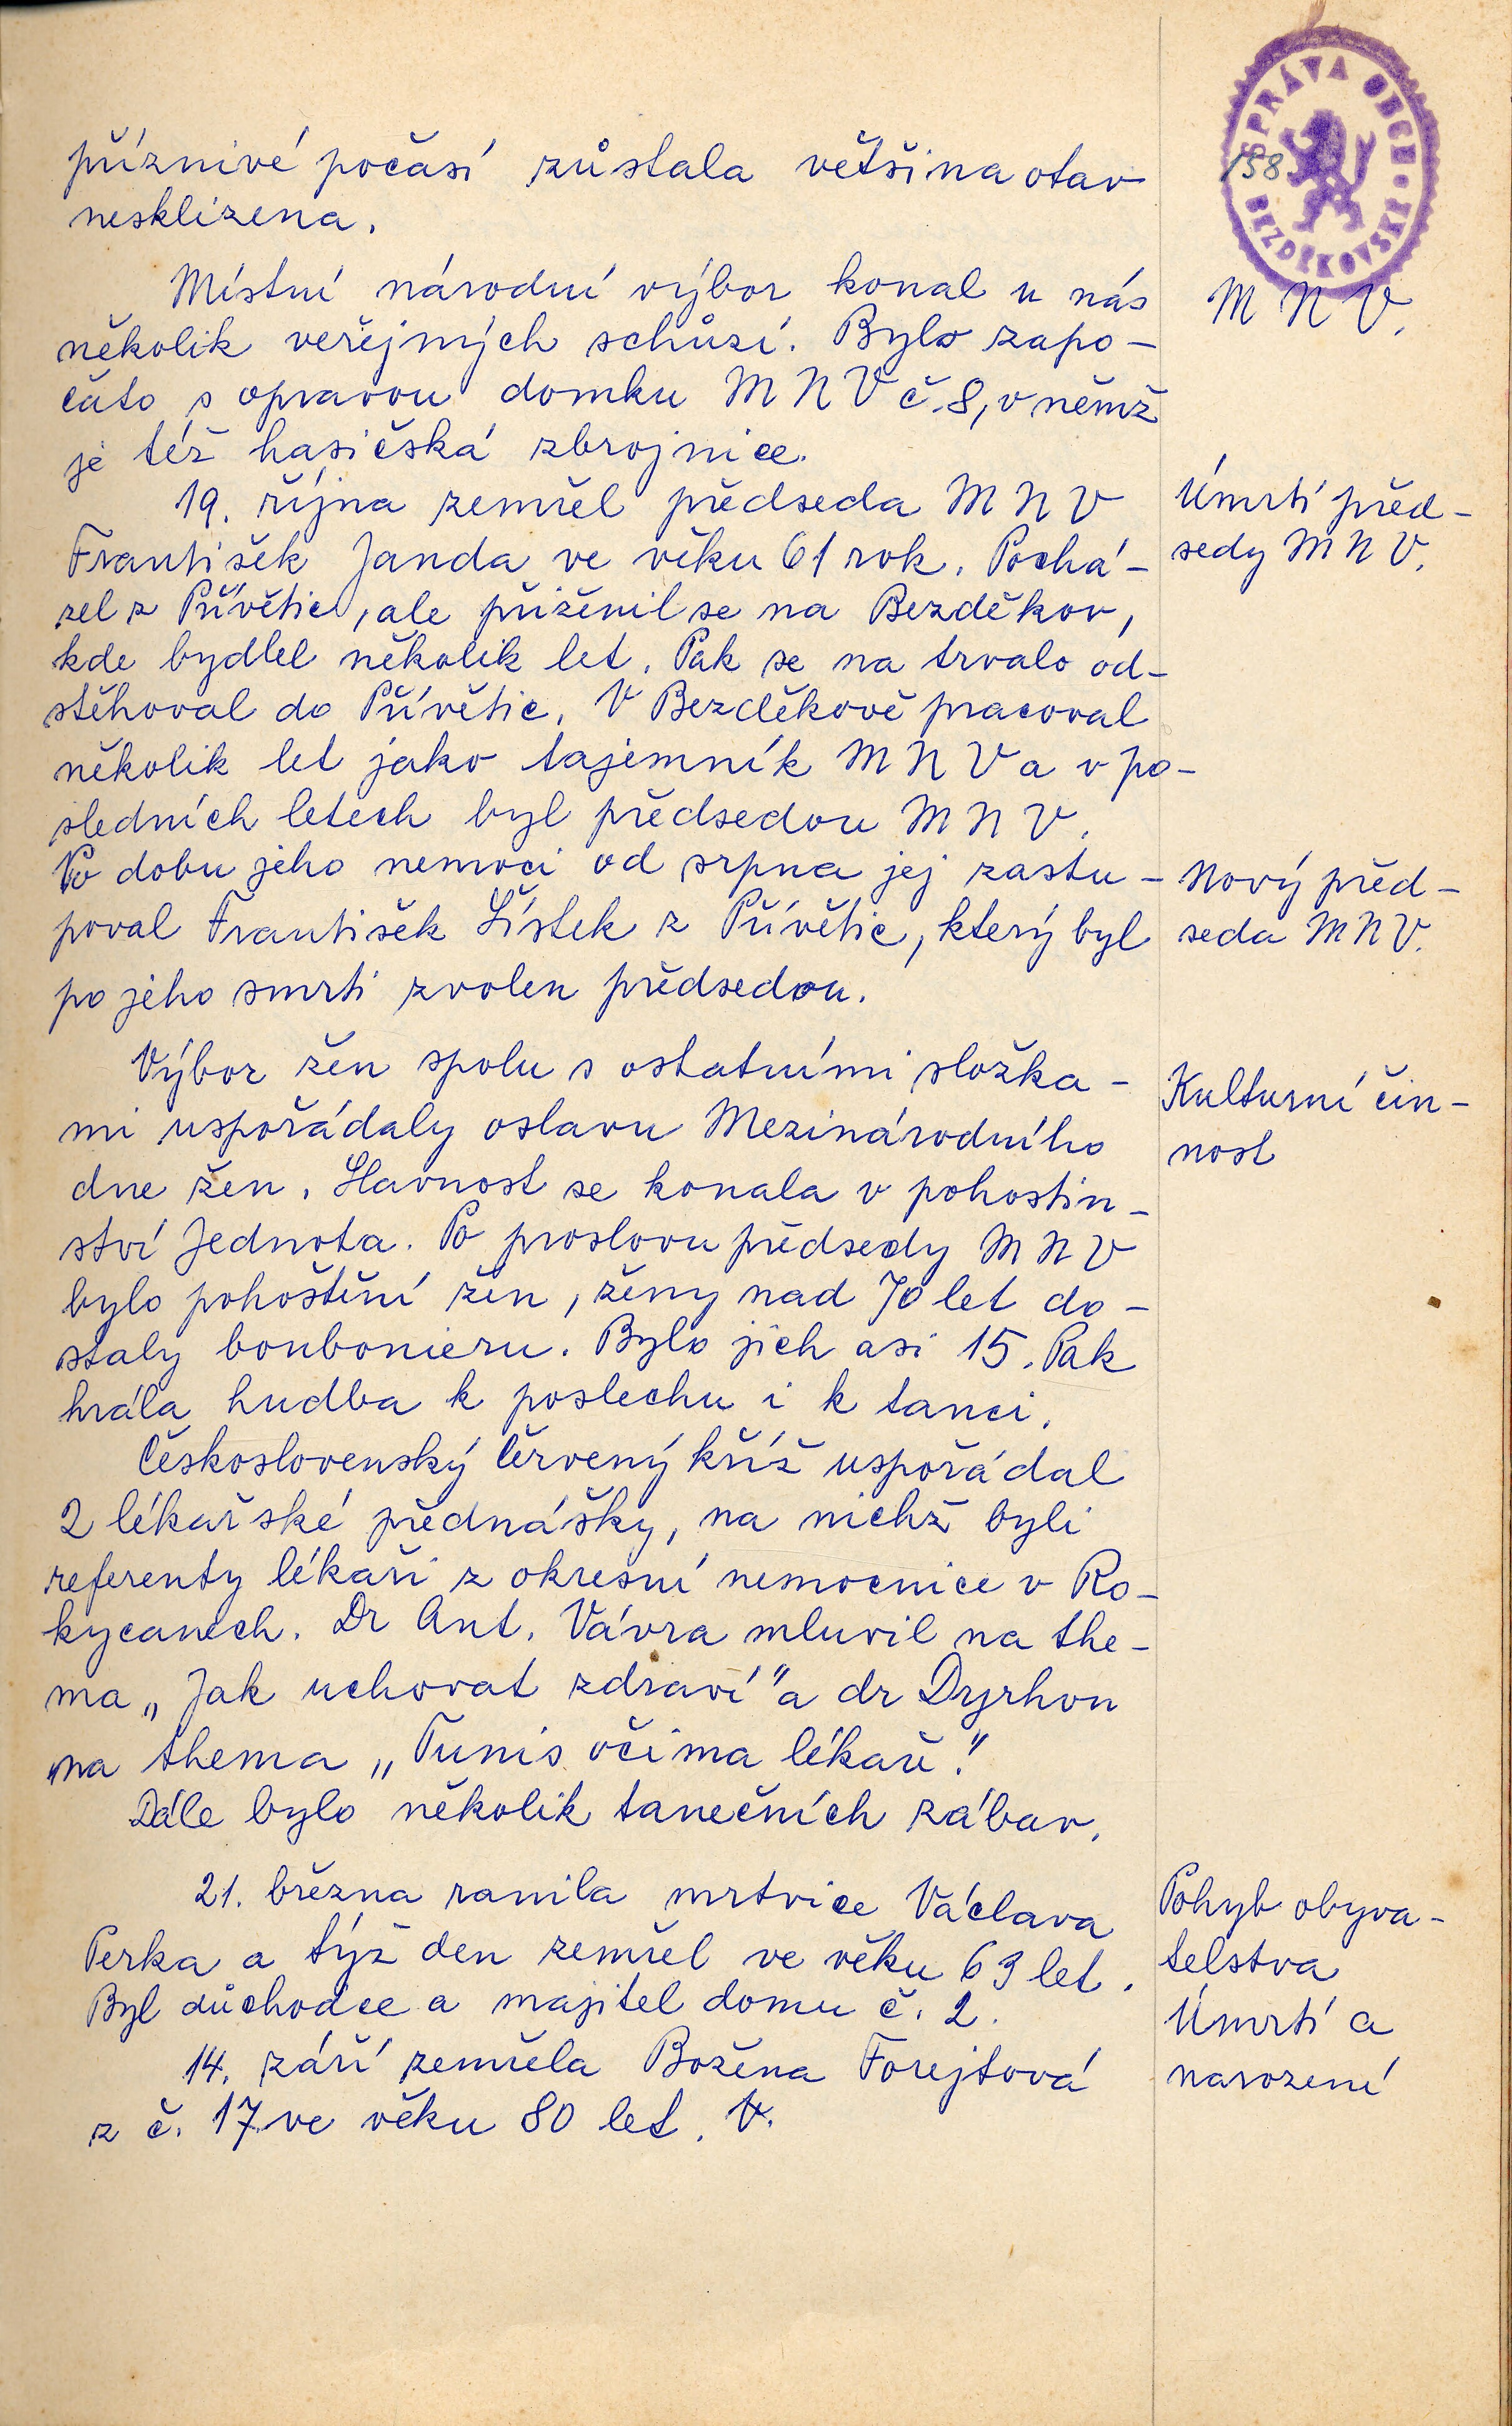 SPRÁVA OBCE BEZDĚKOVSKÉ
158
příznivé počasí zůstala většina otav
nesklizena.
Místní národní výbor konal u nás
M N V.
několik veřejných schůzí. Bylo zapo-
čato s opravou domku M N V č. 8, v němž
je též hasičská zbrojnice.
19. října zemřel předseda M N V
Úmrtí před-
František Janda ve věku 61 rok. Pochá-
sedy M N V.
zel z Přívětic, ale přiženil se na Bezděkov,
kde bydlel několik let. Pak se na trvalo od-
stěhoval do Přívětic. V Bezděkově pracoval
několik let jako tajemník M N V a v po-
sledních letech byl předsedou M N V.
Po dobu jeho nemoci od srpna jej zastu-
Nový před-
poval František Lístek z Přívětic, který byl
seda M N V.
po jeho smrti zvolen předsedou.
Výbor žen spolu s ostatními složka-
Kulturní čin-
mi uspořádaly oslavu Mezinárodního
nost
dne žen. Slavnost se konala v pohostin-
ství Jednota. Po proslovu předsedy M N V
bylo pohoštění žen, ženy nad 70 let do-
staly bonbonieru. Bylo jich asi 15. Pak
hrála hudba k poslechu i k tanci.
Československý Červený kříž uspořádal
2 lékařské přednášky, na nichž byli
referenty lékaři z okresní nemocnice v Ro-
kycanech. Dr Ant. Vávra mluvil na the-
ma „Jak uchovat zdraví" a dr Dyrhon
na thema „Tunis očima lékaře."
Dále bylo několik tanečních zábav.
21. března ranila mrtvice Václava
Pohyb obyva-
Perka a týž den zemřel ve věku 63 let.
telstva
Byl důchodce a majitel domu č. 2.
Úmrtí a
14. září zemřela Božena Forejtová
narození
z č. 17 ve věku 80 let.